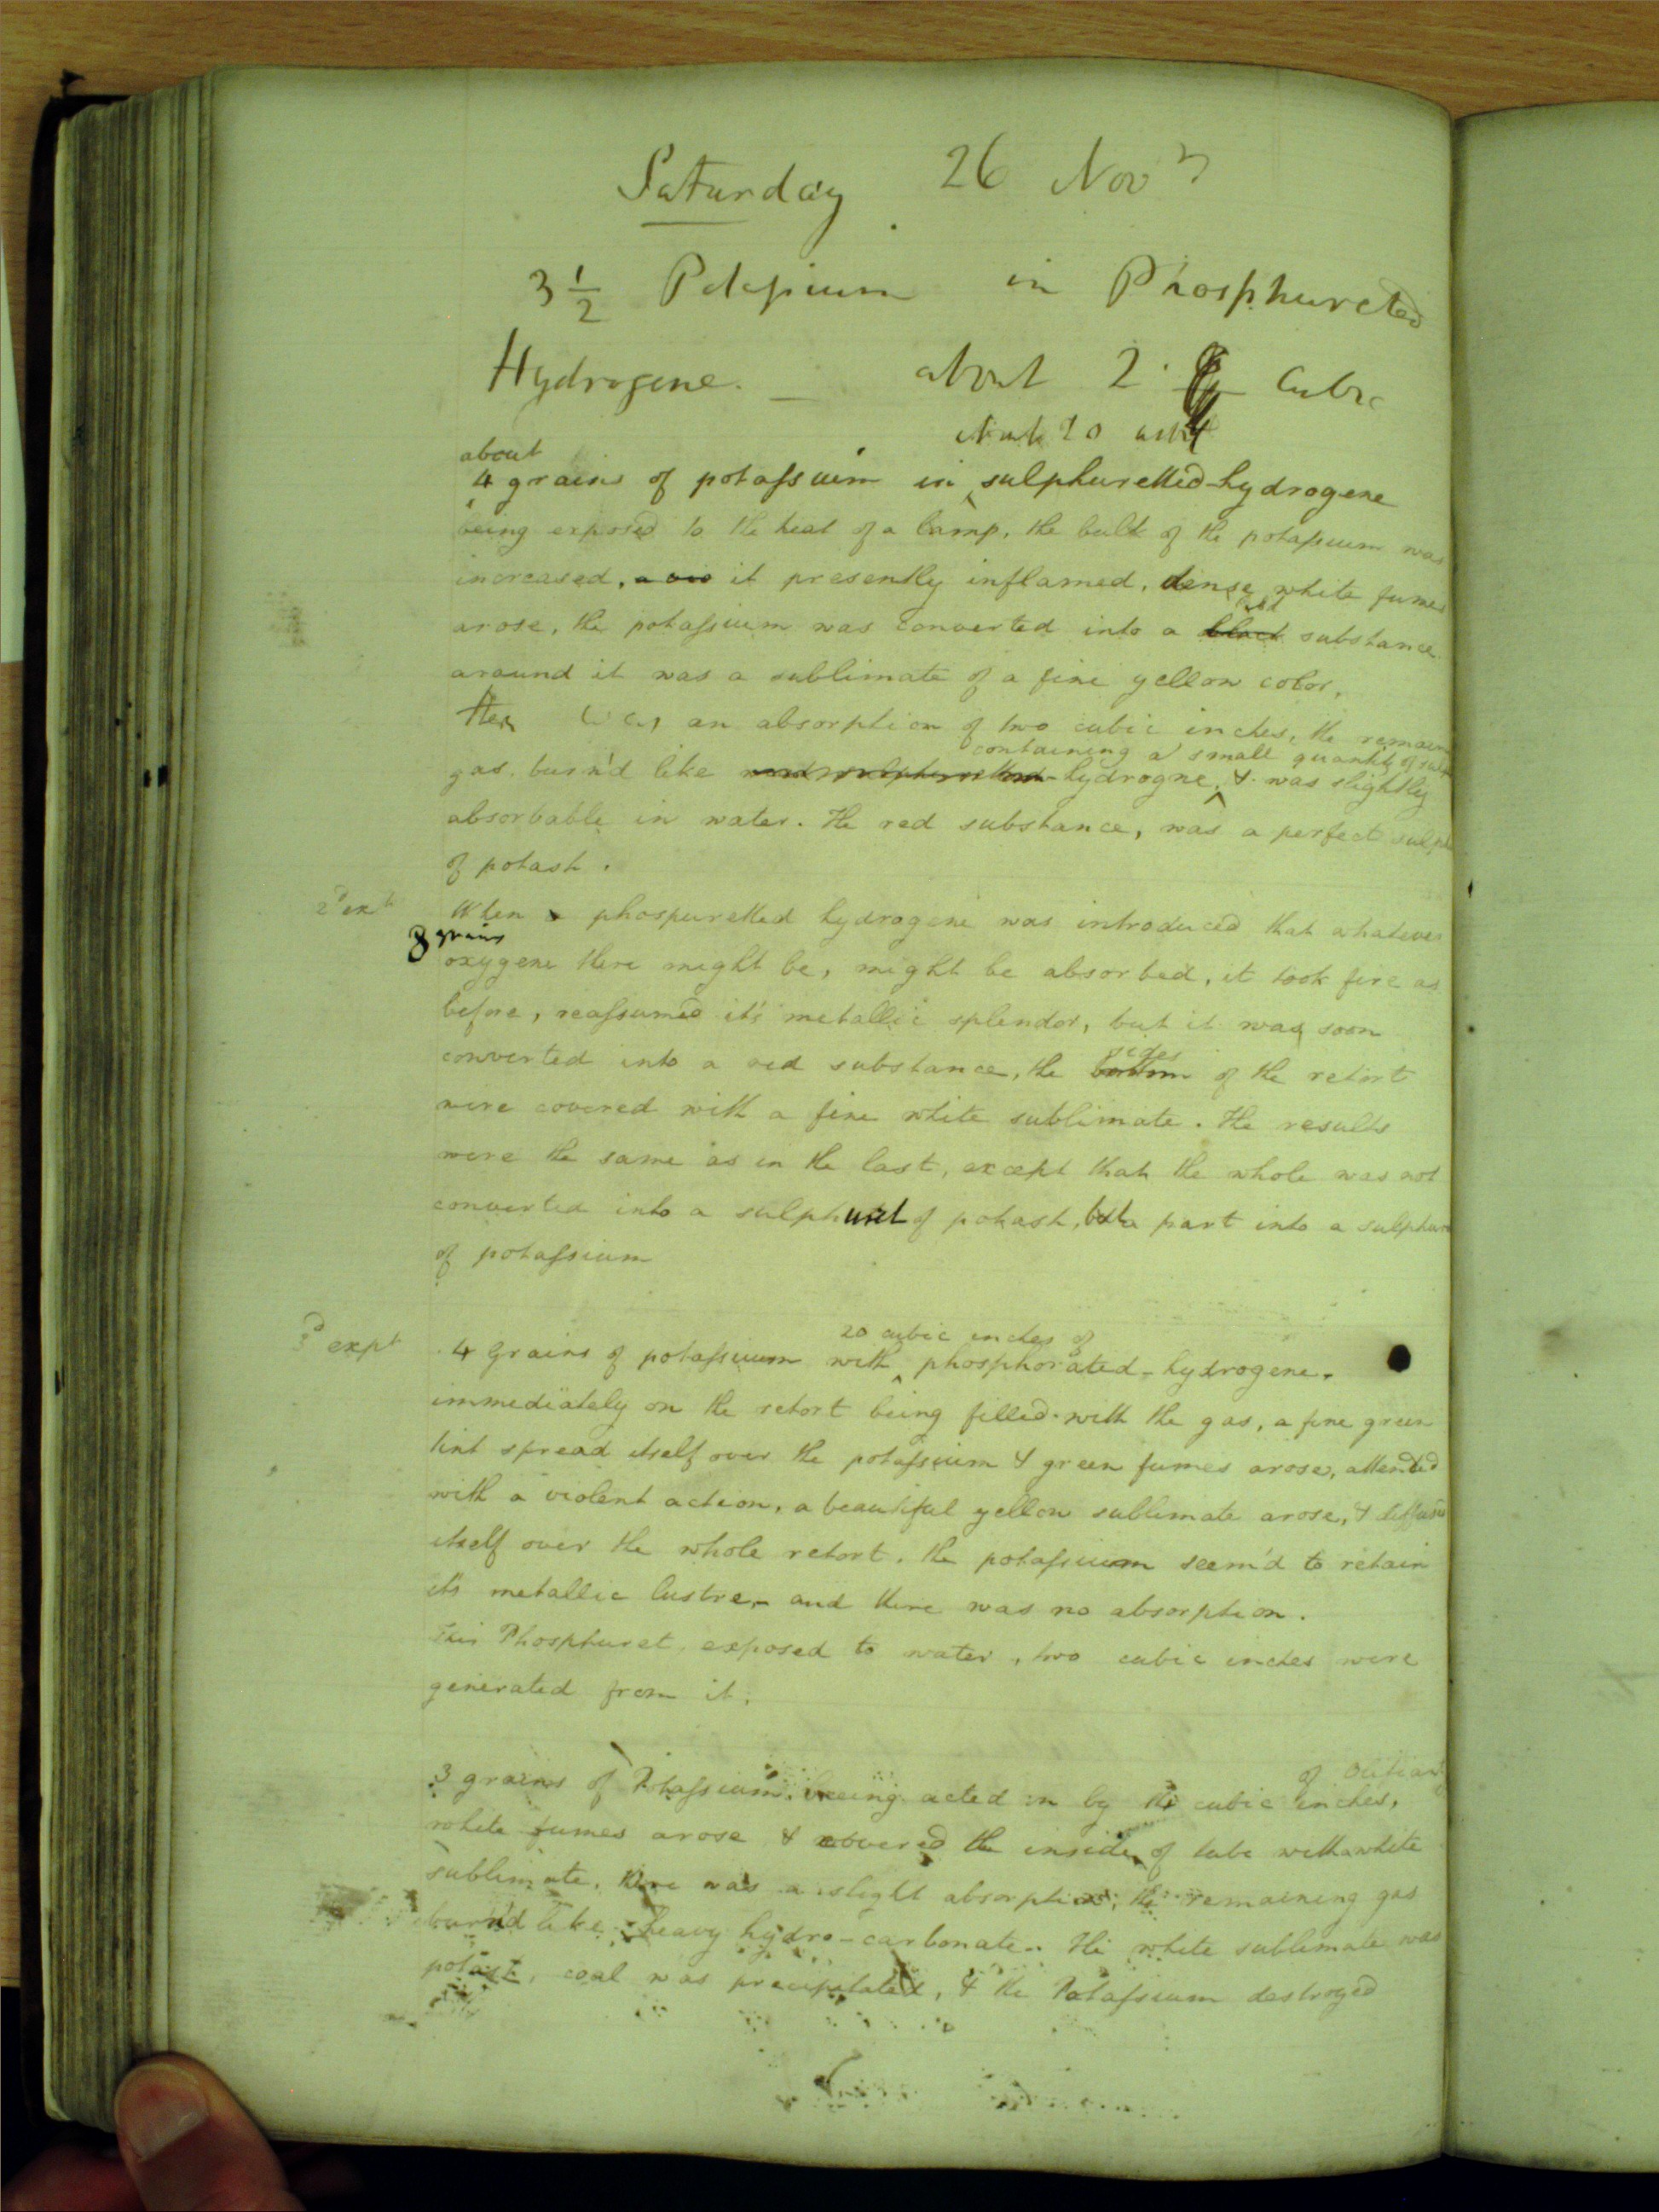 Saturday 26 Novr
3 1/2 Potassium in Phosphureted
Hydrogene. — about 2. Cubic
about 20 cubic
about
4 grains of potassium in sulphuretted-hydrogene
being exposed to the heat of a lamp, the bulk of the potassium was
increased, it presently inflamed, dense white fumes
red
arose, the potassium was converted into a black substance
around it was a sublimate of a fine yellow color,
There was an absorption of two cubic inches, the remain
containing a small quantity of sulp
gas, burn'd like hydrogne, & was slightly
absorbable in water. The red substance, was a perfect sulph
of potash.
2d expt
When phospuretted hydrogene was introduced that whatever
8 grains
oxygene there might be, might be absorbed, it took fire as
before, reassumed it's metallic splendor, but it was soon
sides
converted into a red substance, the bottom of the retort
were covered with a fine white sublimate. The results
were the same as in the last, except that the whole was not
converted into a sulphuret of potash, but a part into a sulphure
of potassium
3d expt
20 cubic inches of
4 Grains of potassium with phosphorated-hydrogene.
immediately on the retort being filled with the gas, a fine green
tint spread itself over the potassium & green fumes arose, attended
with a violent action, a beautiful yellow sublimate arose, & diffused
itself over the whole retort, the potassium seem'd to retain
it's metallic lustre,- and there was no absorption.
This Phosphuret, exposed to water, two cubic inches were
generated from it.
of Olefiant
3 grains of Potassium, being acted on by cubic inches,
white fumes arose & covered the inside of tube with a white
sublimate, there was a slight absorption, the remaining gas
burn'd like heavy hydro-carbonate. The white sublimate was
potash, coal was precipitated, & the Potassium destroyed